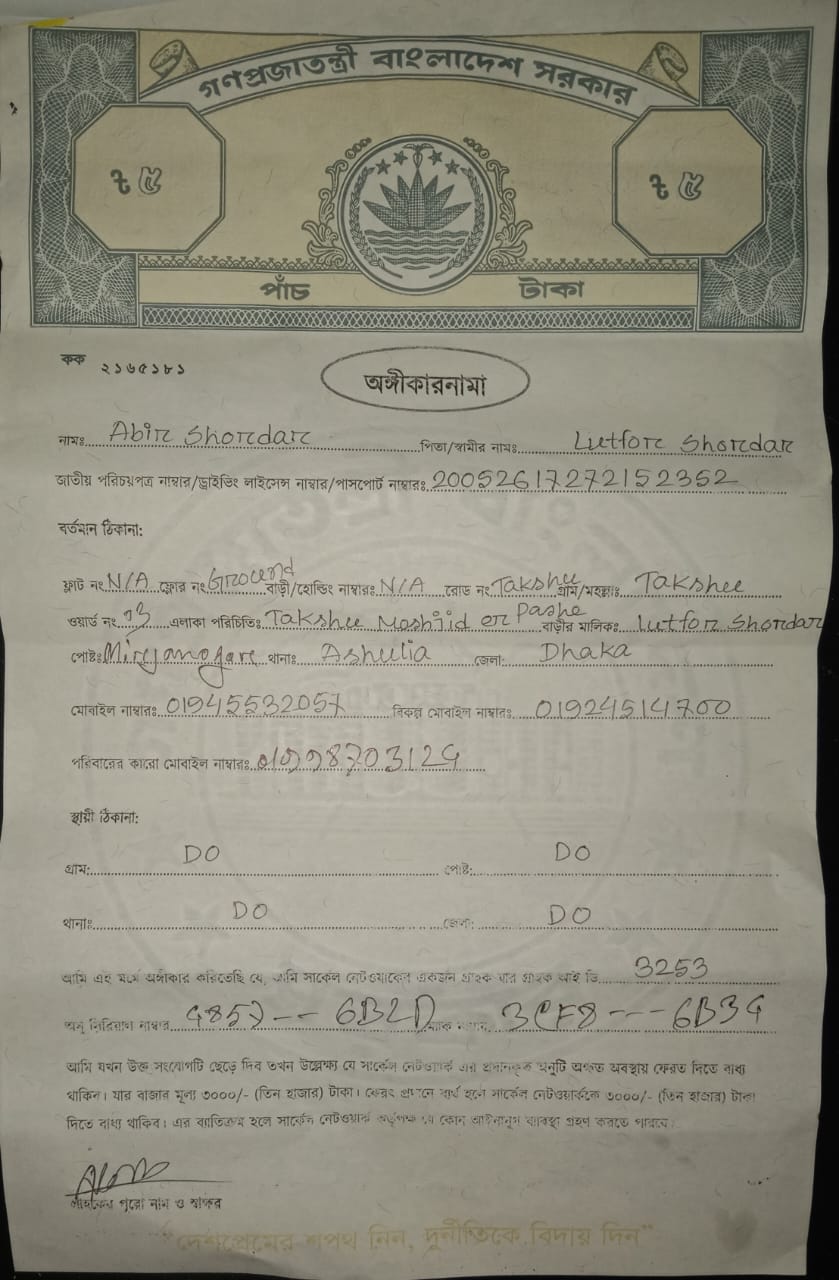 গণপ্রজাতন্ত্রী বাংলাদেশ সরকার
৳ ৫ ৳ ৫
পাঁচ টাকা
কক ২১৬৫১৮১
অঙ্গীকারনামা
নামঃ Abir Shordar পিতা/স্বামীর নামঃ Lutfor Shordar
জাতীয় পরিচয়পত্র নাম্বার/ড্রাইভিং লাইসেন্স নাম্বার/পাসপোর্ট নাম্বারঃ 20052617272152352
বর্তমান ঠিকানা:
ফ্লাট নং N/A ফ্লোর নং Ground বাড়ী/হোল্ডিং নাম্বারঃ N/A রোড নং Takshee গ্রাম/মহল্লাঃ Takshee
ওয়ার্ড নং 13 এলাকা পরিচিতিঃ Takshee Moshjid er Pashe বাড়ীর মালিকঃ Lutfor Shordar
পোষ্টঃ Mirjanogar থানাঃ Ashulia জেলা: Dhaka
মোবাইল নাম্বারঃ 01945532057 বিকল্প মোবাইল নাম্বারঃ 01924514700
পরিবারের কারো মোবাইল নাম্বারঃ
স্থায়ী ঠিকানা:
গ্রাম: DO পোষ্ট: DO
থানাঃ DO জেলা: DO
আমি এই মর্মে অঙ্গীকার করিতেছি যে, আমি সার্কেল নেটওয়ার্কের একজন গ্রাহক যার গ্রাহক আই ডি 3253
অনু সিরিয়াল নাম্বার 6B2D ম্যাক 3CF8---6B34
আমি যখন উক্ত সংযোগটি ছেড়ে দিব তখন উল্লেক্ষ্য যে সার্কেল নেটওয়ার্ক এর প্রদানকৃত অনুটি অক্ষত অবস্থায় ফেরত দিতে বাধ্য
থাকিব। যার বাজার মূল্য ৩০০০/- (তিন হাজার) টাকা। ফেরৎ প্রদানে ব্যর্থ হলে সার্কেল নেটওয়ার্ককে ৩০০০/- (তিন হাজার) টাকা
দিতে বাধ্য থাকিব। এর ব্যতিক্রম হলে সার্কেল নেটওয়ার্ক কর্তৃপক্ষ যে কোন আইনানুগ ব্যবস্থা গ্রহণ করতে পারবে।
গ্রাহকের পুরো নাম ও স্বাক্ষর
"দেশপ্রেমের শপথ নিন, দুর্নীতিকে বিদায় দিন"